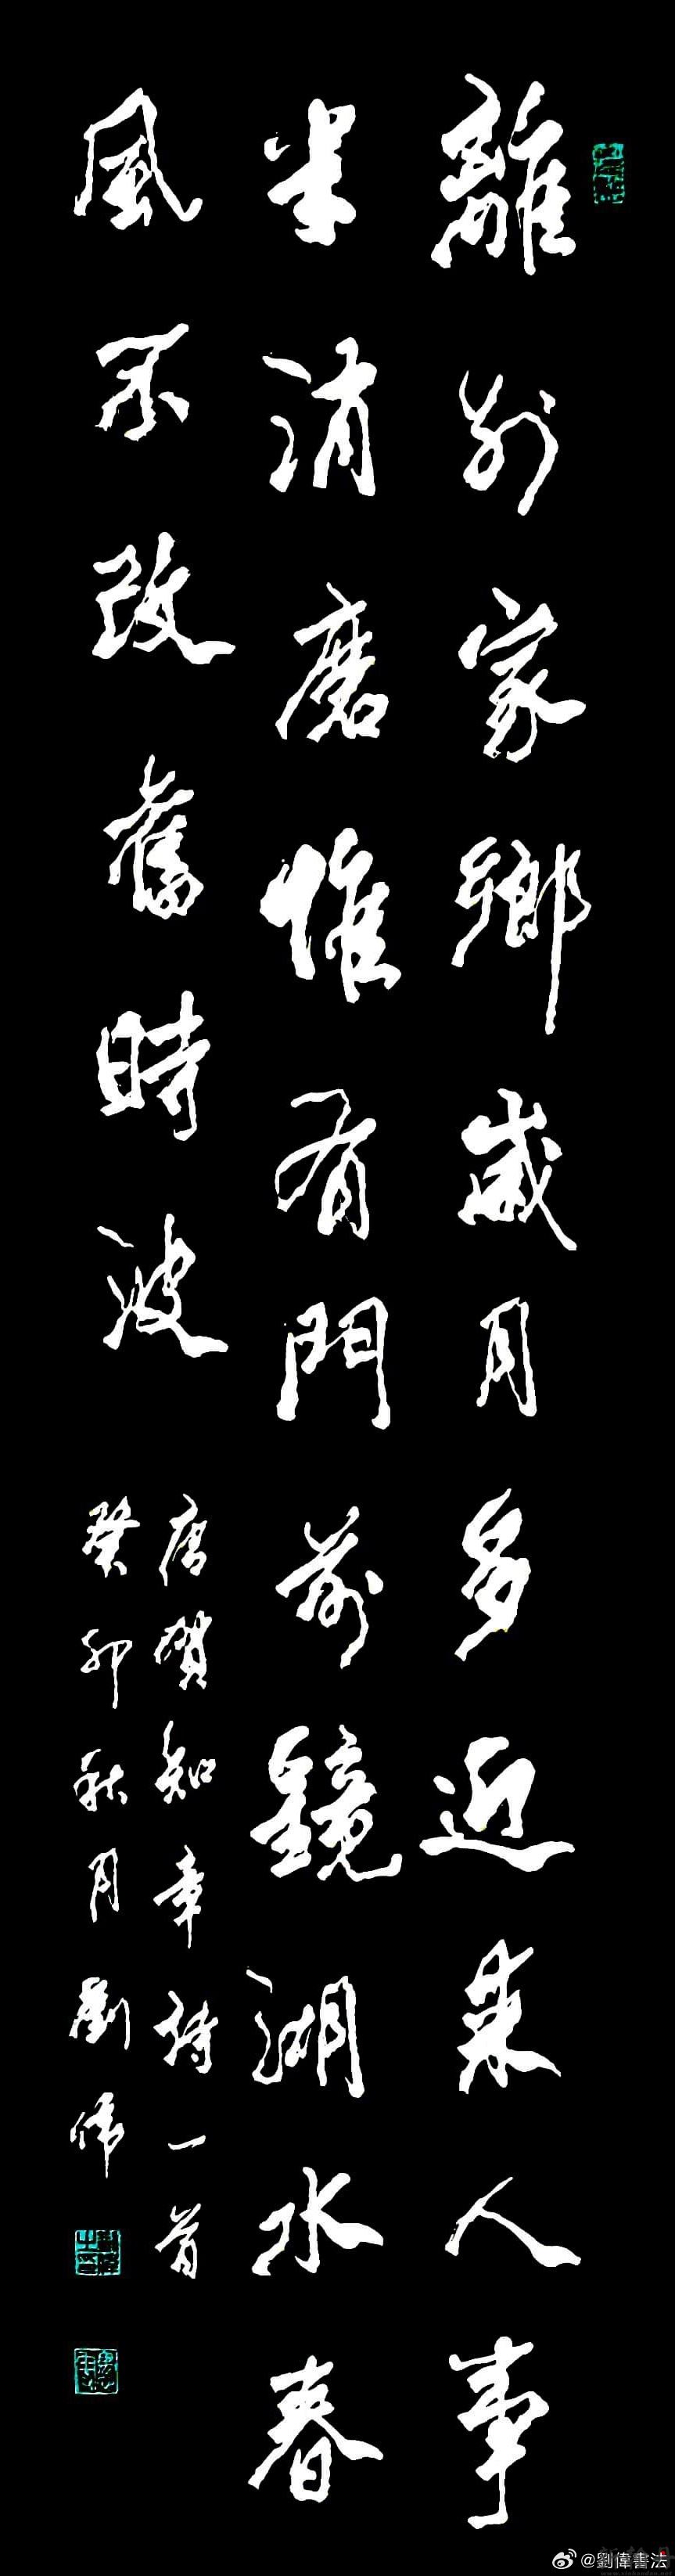 離別家鄉歲月多近來人事
半消磨惟有門前鏡湖水春
風不改舊時波
唐賀知章詩一首
癸卯秋月劉偉
@劉偉書法